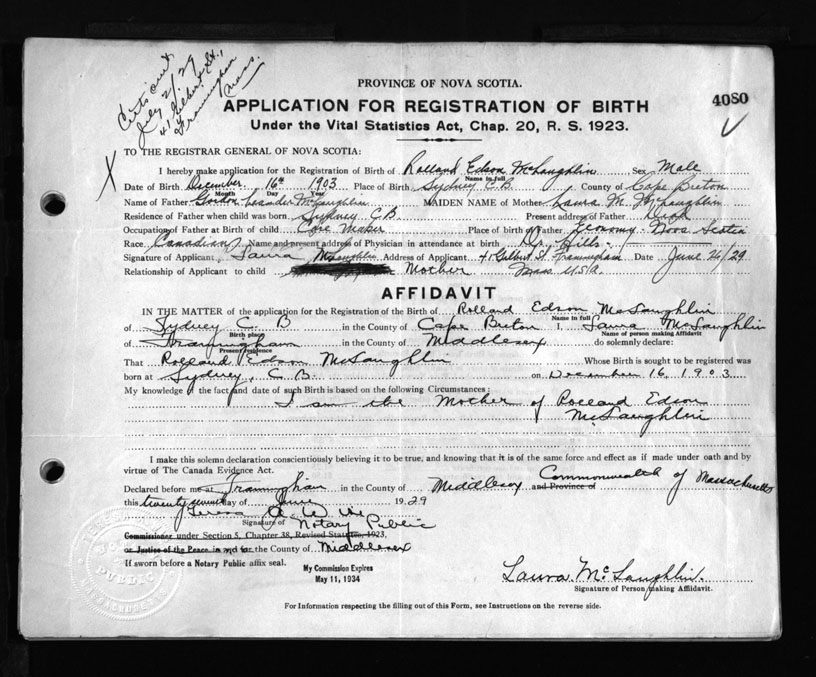 Certs sent
July 2/29
41 Gilbert St.,
Framingham
Mass.
PROVINCE OF NOVA SCOTIA.
4080
APPLICATION FOR REGISTRATION OF BIRTH
Under the Vital Statistics Act, Chap. 20, R. S. 1923.
TO THE REGISTRAR GENERAL OF NOVA SCOTIA:
I hereby make application for the Registration of Birth of Rolland Edson McLaughlin Sex Male
Name in full
Date of Birth December 16th 1903 Place of Birth Sydney C.B. County of Cape Breton
Month Day Year
Name of Father Gordon Leander McLaughlin MAIDEN NAME of Mother Laura M. McLaughlin
Residence of Father when child was born Sydney C.B. Present address of Father Dead
Occupation of Father at Birth of Child Core Maker Place of birth of Father Economy Nova Scotia
Race Canadian Name and present address of Physician in attendance at birth Dr. Hills
Signature of Applicant Laura McLaughlin Address of Applicant 41 Gilbert St. Framingham Date June 26/29
Relationship of Applicant to child Mother Mass U.S.A.
AFFIDAVIT
IN THE MATTER of the application for the Registration of the Birth of Rolland Edson McLaughlin
Name in full
of Sydney C. B in the County of Cape Breton I, Laura McLaughlin
Birth place Name of person making Affidavit
of Framingham in the County of Middlesex do solemnly declare:
Present residence
That Rolland Edson McLaughlin Whose Birth is sought to be registered was
born at Sydney, C. B. on December 16, 1903
My knowledge of the fact and date of such Birth is based on the following Circumstances:
I am the Mother of Rolland Edson
McLaughlin
I make this solemn declaration conscientiously believing it to be true, and knowing that it is of the same force and effect as if made under oath and by
virtue of The Canada Evidence Act.
Declared before me at Framinghan in the County of Middlesex and Province of Commonwealth of Massachusetts
this day of June 1929
Teresa
Signature of Notary Public
Commissioner under Section 5, Chapter 38, Revised Statutes, 1923,
or Justice of the Peace in and for the County of Middlesex
If sworn before a Notary Public affix seal.
My Commission Expires
May 11, 1934
Laura McLaughlin.
Signature of Person making Affidavit.
For Information respecting the filling out of this Form, see Instructions on the reverse side.